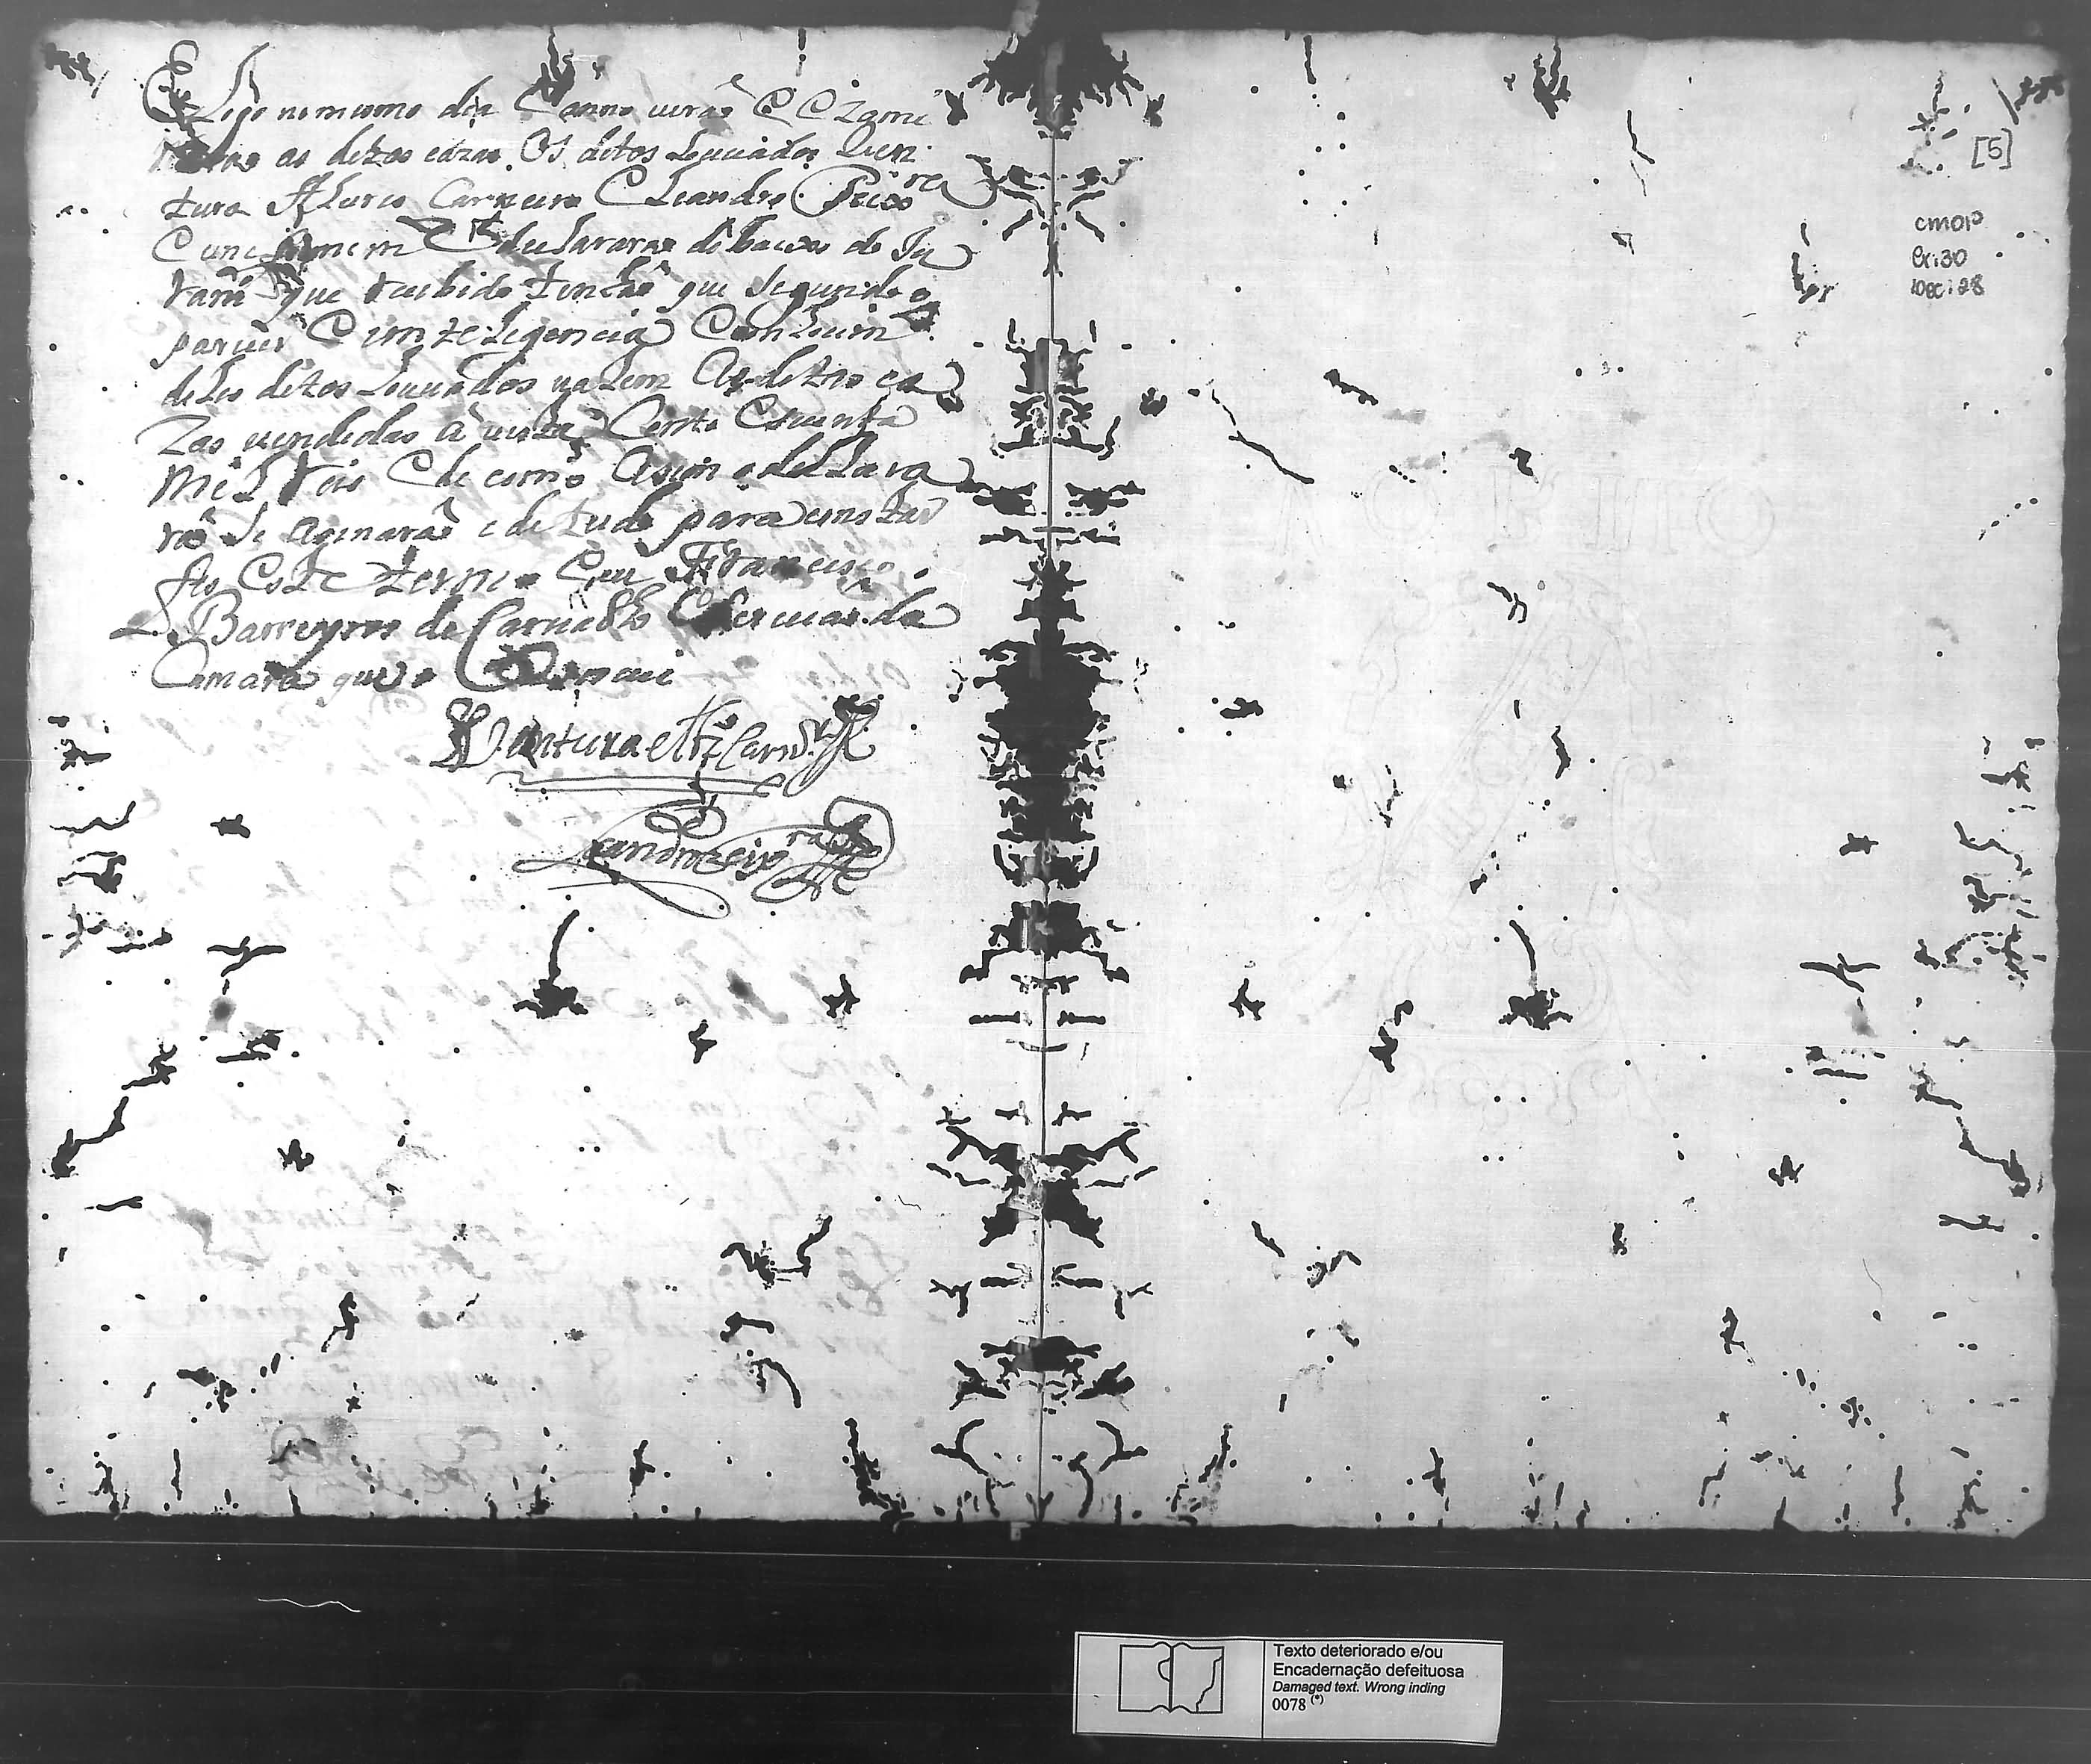 E Logo no mesmo dia E anno virão E Ezami
narão as ditas cazas Os ditos Louuados Ven
tura Alures Carneiro E Leandro Peixra
E uneformem.te declararão debaixo do Ju
ram.to que recebido tinhão que segundo o
pareser E intelegencia Conheciam
deles ditos Louuados ualem As ditas ca
Zas uendidas à uista Cento E
Mil Reis E de como Asim o declara
rão Se asinarão e de tudo para constar
fis Este termo E eu Francisco
Barreyros de Caru.lho Escriuão da
Camara que o Escreui
Ventura Alz Carn.ro
Leandro Peix.ra
[5]
CMOP
cx:30
DOC:28
Texto deteriorado e/ou
Encadernação defeituosa
Damaged text. Wrong inding
0078 (*)